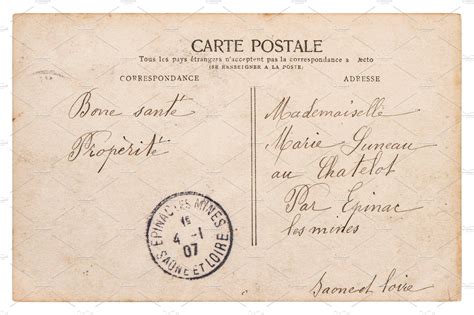 CARTE POSTALE
Tous les pays étrangers n'acceptent pas la correspondance au recto
(SE RENSEIGNER A LA POSTE)
CORRESPONDANCE
ADRESSE
Bonne santé
Propèrité
Mademaiselle
Marie Luneau
au Chatelot
Par Epinac
les mines
Saone et loire
EPINAC-LES-MINES
1E
4 -1
07
SAONE ET LOIRE